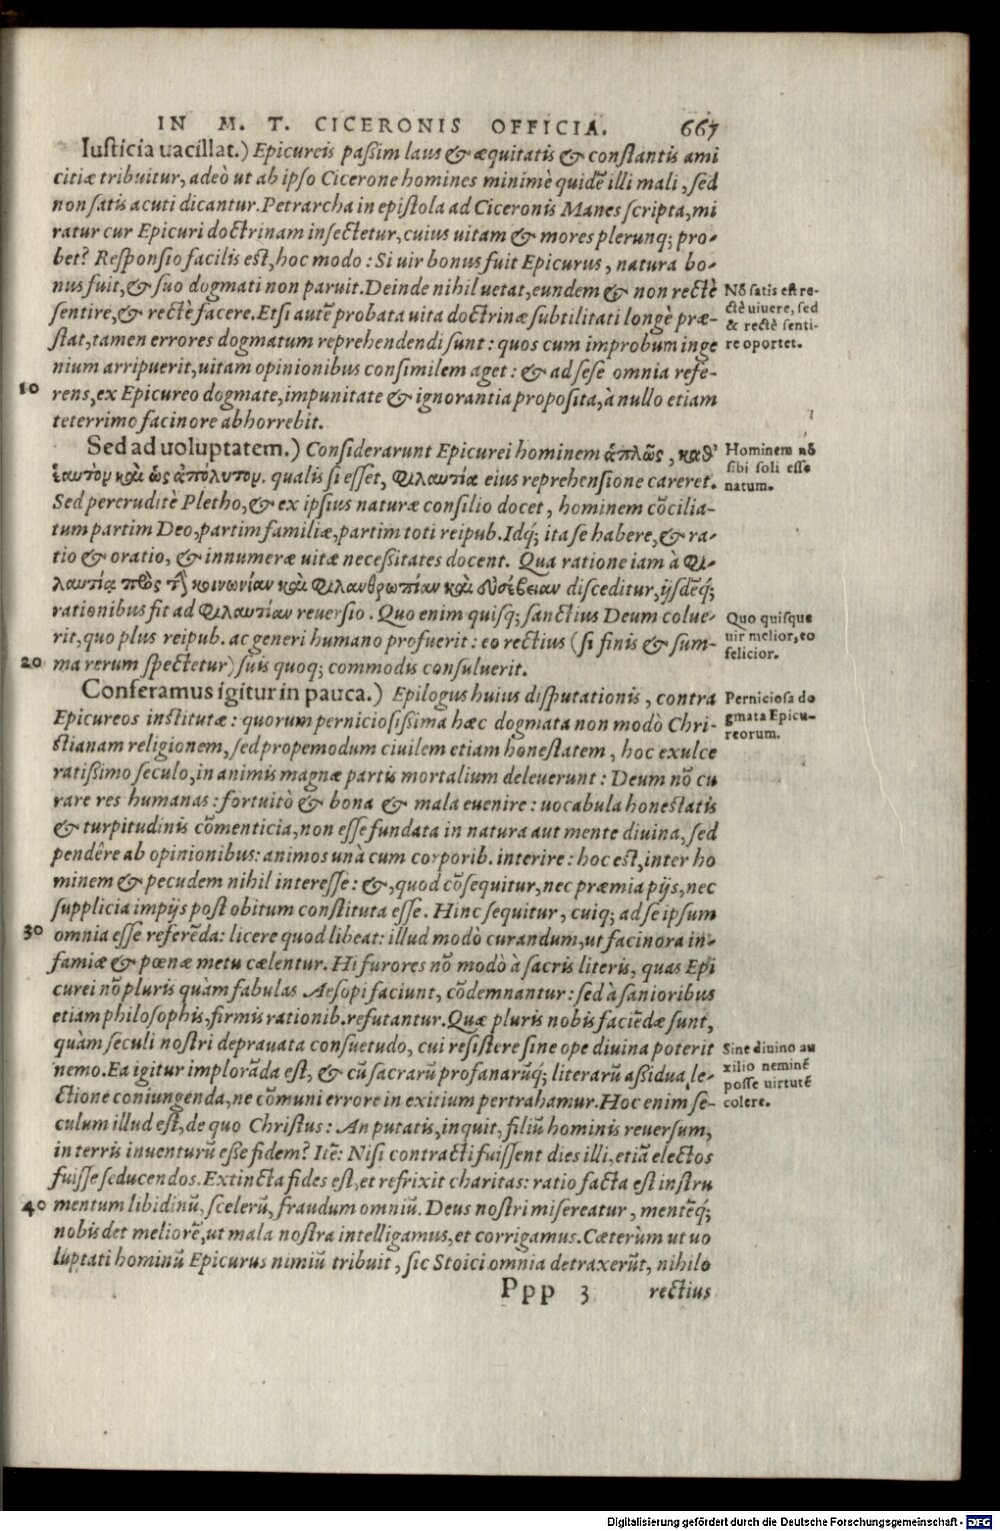 IN M. T. CICERONIS OFFICIA. 667
Iusticia uacillat.) Epicureis paßim laus & æquitatis & constantis ami
citiæ tribuitur, adeò ut ab ipso Cicerone homines minimè quidē illi mali, sed
non satis acuti dicantur. Petrarcha in epistola ad Ciceronis Manes scripta, mi
ratur cur Epicuri doctrinam insectetur, cuius uitam & mores plerunq; pro-
bet? Responsio facilis est, hoc modo: Si uir bonus fuit Epicurus, natura bo-
nus fuit, & suo dogmati non paruit. Deinde nihil uetat, eundem & non rectè
sentire, & rectè facere. Etsi autē probata uita doctrinæ subtilitati longè præ-
stat, tamen errores dogmatum reprehendendi sunt: quos cum improbum inge
nium arripuerit, uitam opinionibus consimilem aget: & ad sese omnia refe-
10 rens, ex Epicureo dogmate, impunitate & ignorantia proposita, à nullo etiam
teterrimo facinore abhorrebit.
Nō satis est re-
ctè uiuere, sed
& rectè senti-
re oportet.
Sed ad uoluptatem.) Considerarunt Epicurei hominem ἁπλῶς, καθ'
ἑαυτὸν καὶ ὡς ἀπόλυτον. qualis si esset, Φιλαυτία eius reprehensione careret.
Sed pererudité Pletho, & ex ipsius naturæ consilio docet, hominem cōcilia-
tum partim Deo, partim familiæ, partim toti reipub. Idq́; ita se habere, & ra-
tio & oratio, & innumeræ uitæ necessitates docent. Qua ratione iam à Φι-
λαυτίᾳ πρὸς τὴν κοινωνίαν καὶ Φιλανθρωπίαν καὶ εὐσέβειαν disceditur, ijsdēq́;
rationibus fit ad Φιλαυτίαν reuersio. Quo enim quisq; sanctius Deum colue-
rit, quo plus reipub. ac generi humano profuerit: eo rectius (si finis & sum-
20 ma rerum spectetur) suis quoq; commodis consuluerit.
Hominem nō
sibi soli esse
natum.
Quo quisque
uir melior, eo
felicior.
Conferamus igitur in pauca.) Epilogus huius disputationis, contra
Epicureos institutæ: quorum perniciosißima hæc dogmata non modò Chri-
stianam religionem, sed propemodum ciuilem etiam honestatem, hoc exulce
ratißimo seculo, in animis magnæ partis mortalium deleuerunt: Deum nō cu
rare res humanas: fortuitò & bona & mala euenire: uocabula honestatis
& turpitudinis cōmenticia, non esse fundata in natura aut mente diuina, sed
pendêre ab opinionibus: animos unà cum corporib. interire: hoc est, inter ho
minem & pecudem nihil interesse: &, quod cōsequitur, nec præmia pijs, nec
supplicia impijs post obitum constituta esse. Hinc sequitur, cuiq; ad se ipsum
30 omnia esse referēda: licere quod libeat: illud modò curandum, ut facinora in-
famiæ & pœnæ metu cælentur. Hi furores nō modò à sacris literis, quas Epi
curei nō pluris quàm fabulas Aesopi faciunt, cōdemnantur: sed à sanioribus
etiam philosophis, firmis rationib. refutantur. Quæ pluris nobis faciēdæ sunt,
quàm seculi nostri deprauata consuetudo, cui resistere sine ope diuina poterit
nemo. Ea igitur implorāda est, & cū sacrarū profanarūq́; literarū aßidua le-
ctione coniungenda, ne cōmuni errore in exitium pertrahamur. Hoc enim se-
culum illud est, de quo Christus: An putatis, inquit, filiū hominis reuersum,
in terris inuenturū eße fidem? Itē: Nisi contracti fuissent dies illi, etiā electos
fuisse seducendos. Extincta fides est, et refrixit charitas: ratio facta est instru
40 mentum libidinū, scelerū, fraudum omniū. Deus nostri misereatur, mentēq́;
nobis det meliorē, ut mala nostra intelligamus, et corrigamus. Cæterùm ut uo
luptati hominū Epicurus nimiū tribuit, sic Stoici omnia detraxerūt, nihilo
Perniciosa do
gmata Epicu-
reorum.
Sine diuino au
xilio neminē
posse uirtutē
colere.
Ppp 3 rectius
Digitalisierung gefördert durch die Deutsche Forschungsgemeinschaft - DFG